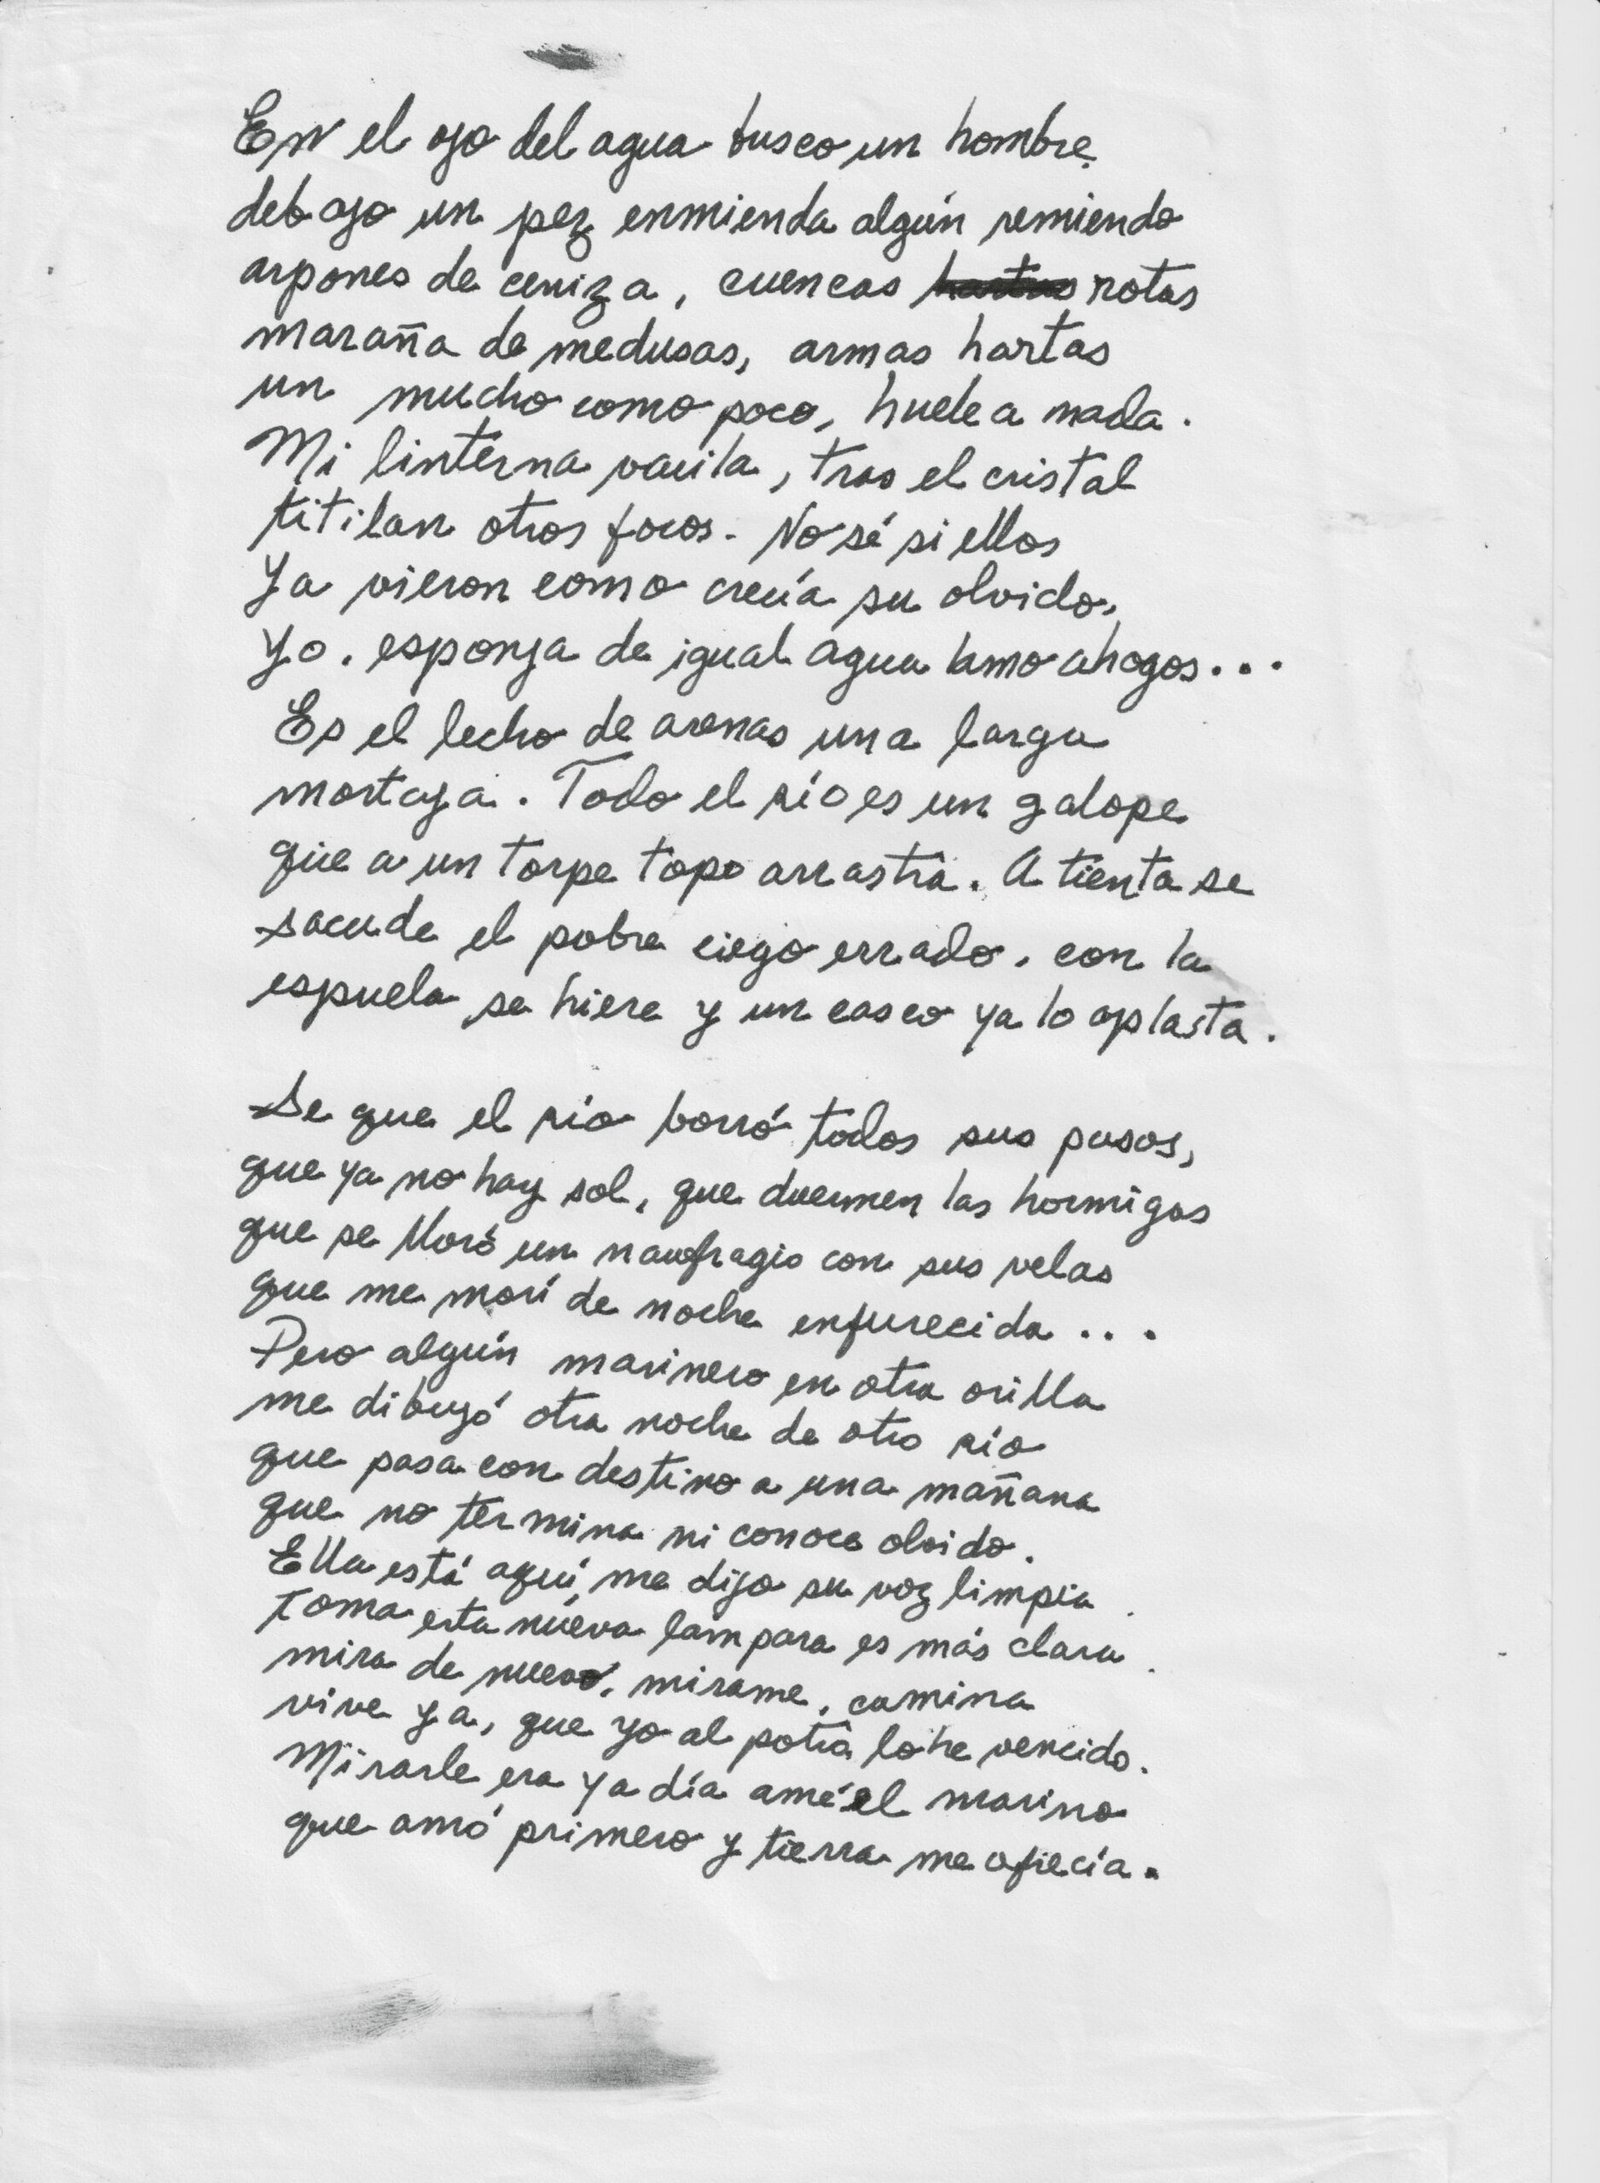 En el ojo del agua busco un hombre
debajo un pez enmienda algún remiendo
arpones de ceniza, cuencas hartas rotas
maraña de medusas, armas hartas
un mucho como poco, huele a nada.
Mi linterna vacila, tras el cristal
titilan otros focos. No sé si ellos
ya vieron como crecía su olvido,
yo, esponja de igual agua lamo ahogos...
Es el lecho de arenas una larga
mortaja. Todo el río es un galope
que a un torpe topo arrastra. A tienta se
sacude el pobre ciego errado, con la
espuela se hiere y un casco ya lo aplasta.
Se que el río borró todos sus pasos,
que ya no hay sol, que duermen las hormigas
que se lloró un naufragio con sus velas
que me morí de noche enfurecida...
Pero algún marinero en otra orilla
me dibujó otra noche de otro río
que pasa con destino a una mañana
que no termina ni conoce olvido.
Ella está aquí, me dijo su voz limpia
toma esta nueva lampara es más clara
mira de nuevo, mirame, camina
vive ya, que yo al potra lo he vencido.
Mirarle era ya día amé el marino
que amó primero y tierra me ofrecía.